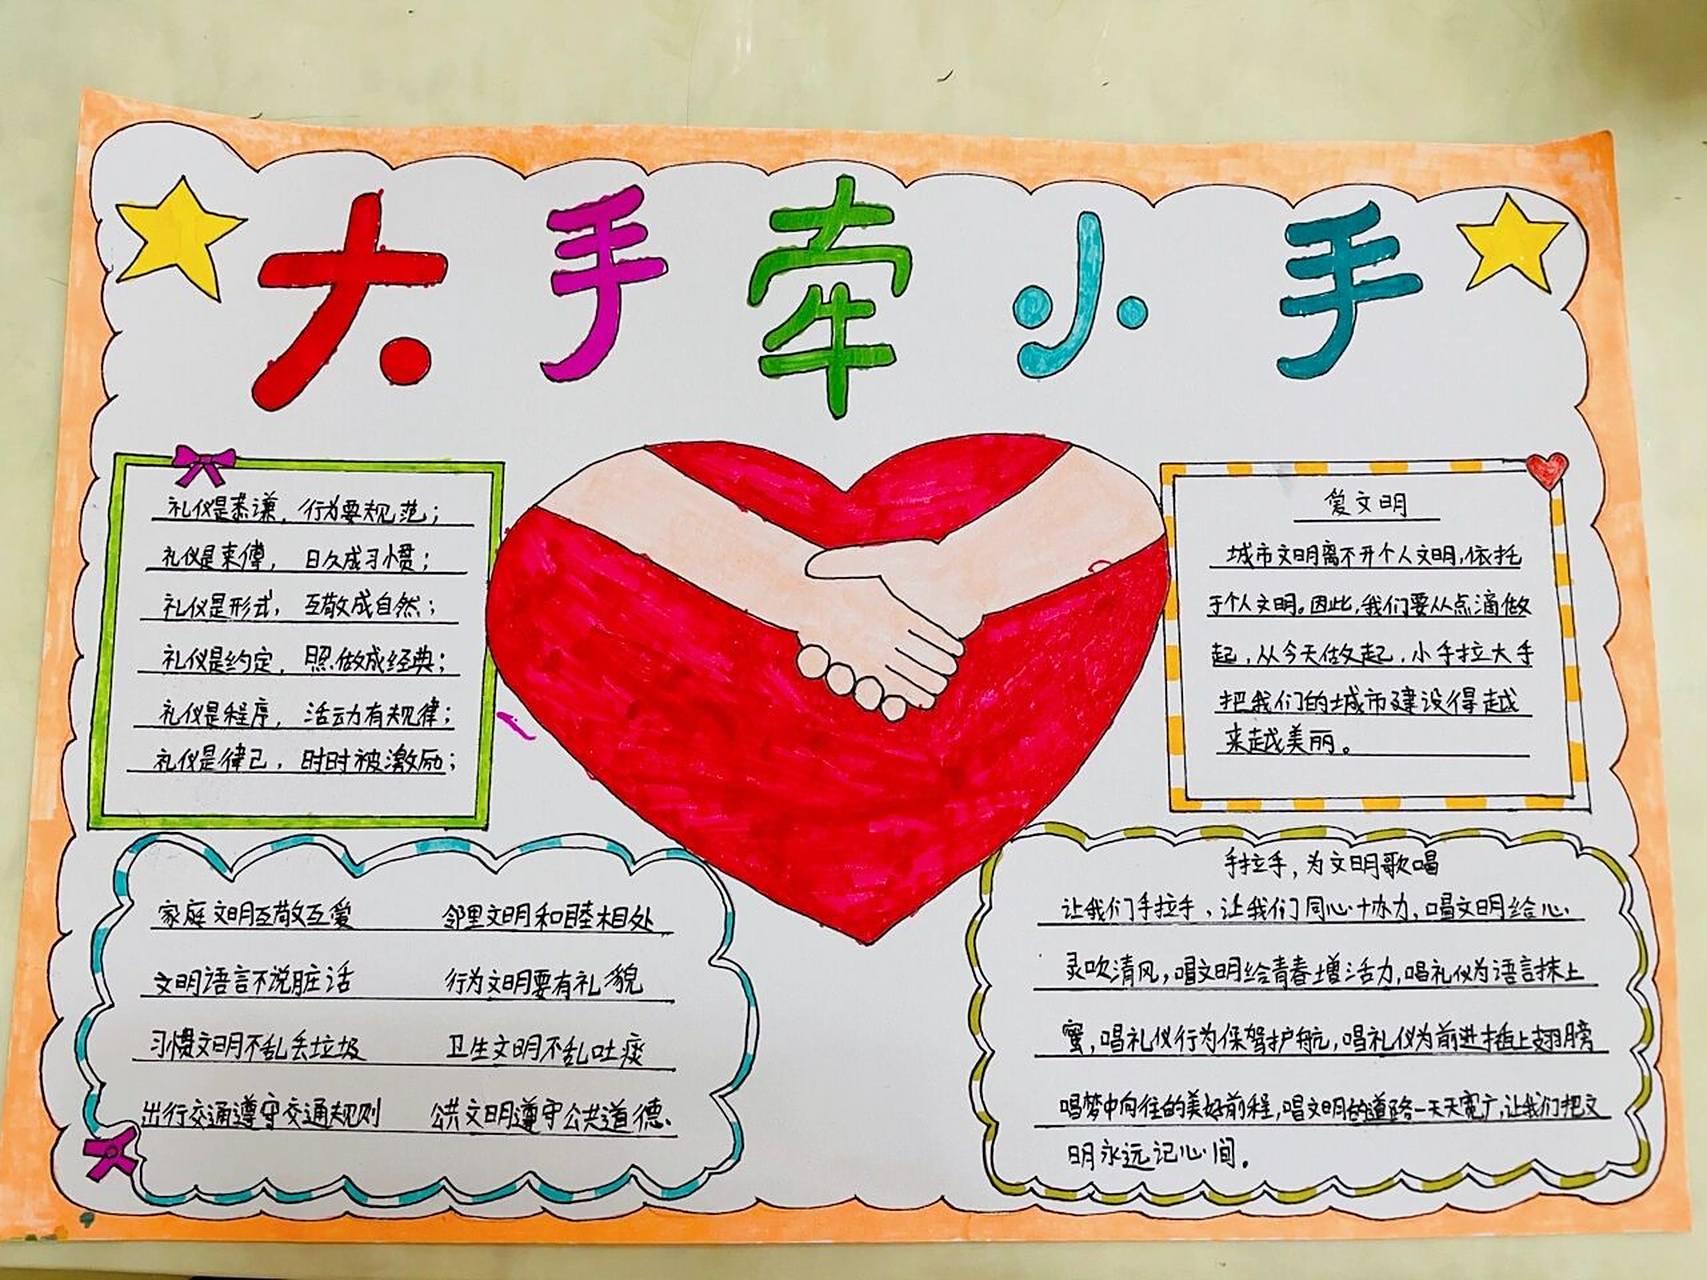 大手牵小手
礼仪是恭谦，行为要规范；
礼仪是素养，日久成习惯；
礼仪是形式，互敬成自然；
礼仪是约定，照做成经典；
礼仪是程序，活动有规律；
礼仪是律己，时时被激励；
爱文明
城市文明离不开个人文明，依托
于个人文明。因此，我们要从点滴做
起，从今天做起，小手拉大手
把我们的城市建设得越
来越美丽。
家庭文明互敬互爱 邻里文明和睦相处
文明语言不说脏话 行为文明要有礼貌
习惯文明不乱丢垃圾 卫生文明不乱吐痰
出行交通遵守交通规则 公共文明遵守公共道德、
手拉手，为文明歌唱
让我们手拉手，让我们同心协力，唱文明给心
灵吹清风，唱文明给青春增活力，唱礼仪为语言抹上
蜜，唱礼仪行为保驾护航，唱礼仪为前进插上翅膀
唱梦中向往的美好前程，唱文明的道路一天天宽广，让我们把文
明永远记心间。